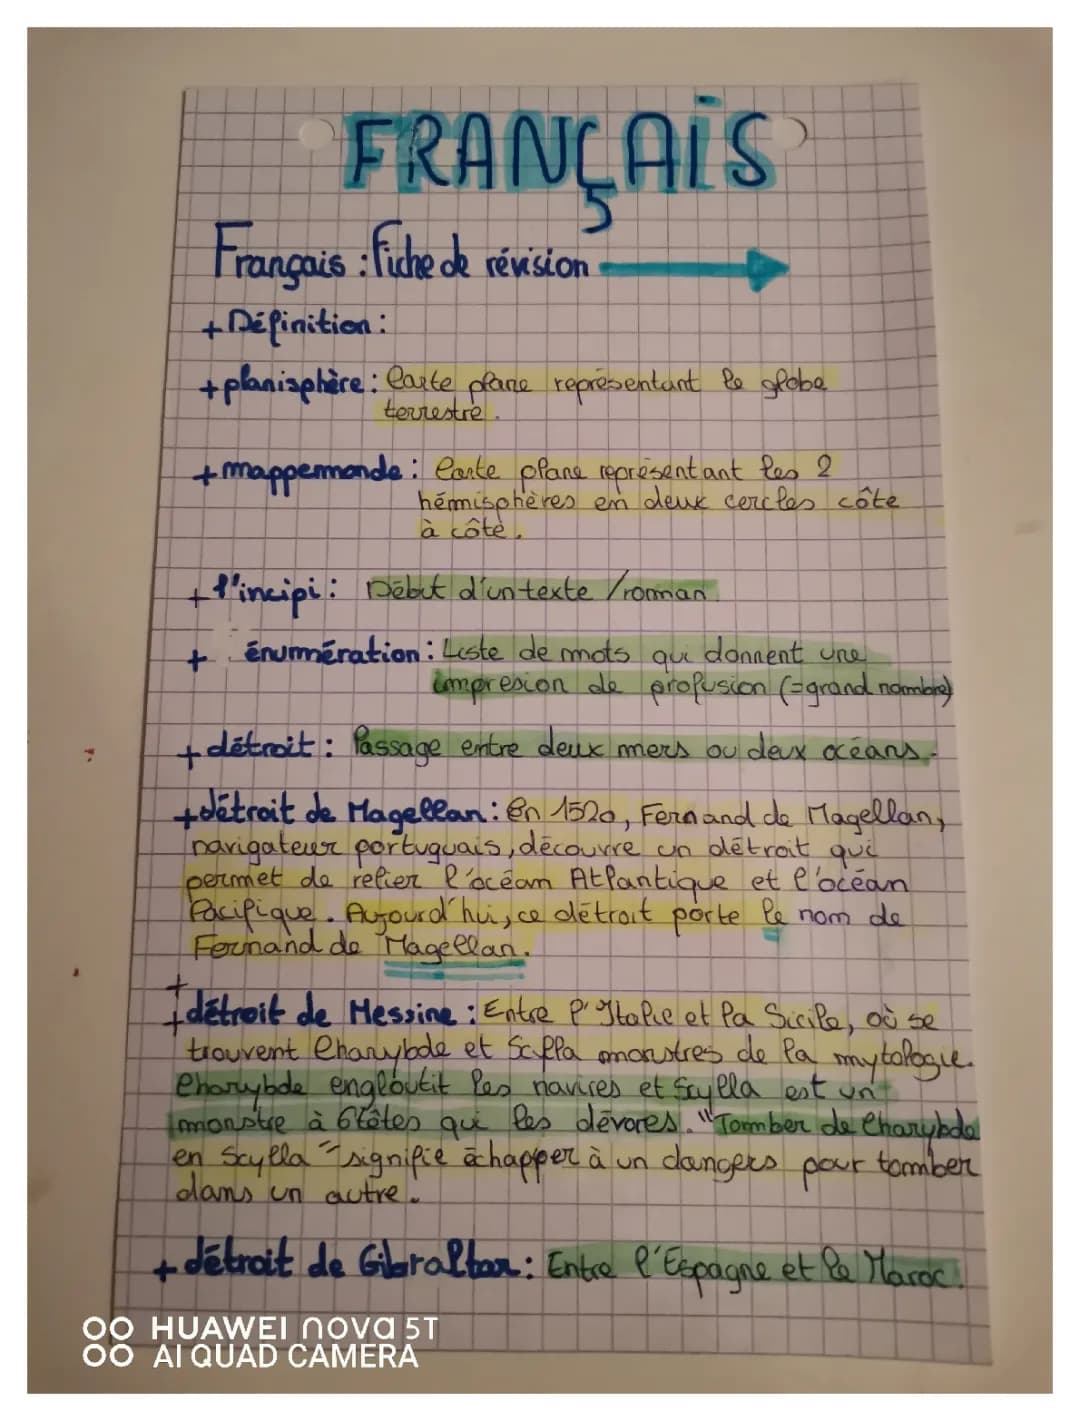 FRANÇAIS
Français : Fiche de révision
+ Définition :
+ planisphère : Carte plane représentant le globe
terrestre.
+ mappemonde : Carte plane représentant les 2
hémisphères en deux cercles côte
à côte.
+ l'incipi : Début d'un texte / roman.
+ énumération : Liste de mots qui donnent une
impresion de profusion (=grand nombre)
+ détroit : Passage entre deux mers ou deux océans.
+ détroit de Magellan : En 1520, Fernand de Magellan,
navigateur portuguais, découvre un détroit qui
permet de relier l'océan Atlantique et l'océan
Pacifique. Aujourd'hui, ce détroit porte le nom de
Fernand de Magellan.
+
+ détroit de Messine : Entre l'Italie et la Sicile, où se
trouvent Charybde et Scylla monstres de la mytologie.
Charybde engloutit les navires et Scylla est un
monstre à 6 têtes qui les dévores. "Tomber de Charybde
en Scylla" signifie échapper à un dangers pour tomber
dans un autre.
+ détroit de Gibraltar : Entre l'Espagne et le Maroc.
HUAWEI nova 5T
AI QUAD CAMERA